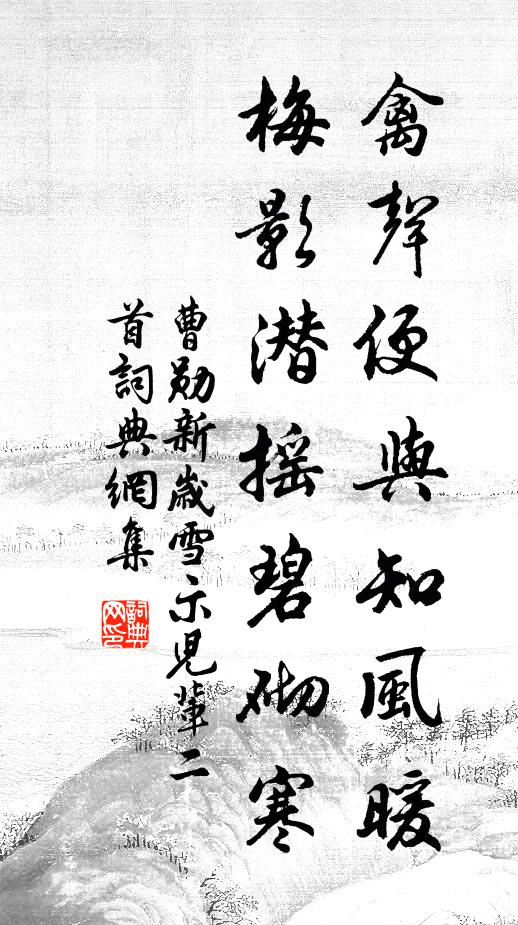 禽聲便與知風暖
梅影潜摇碧砌寒
曹勛新歲雪示兒輩二
首詞典網集
詞典
网印